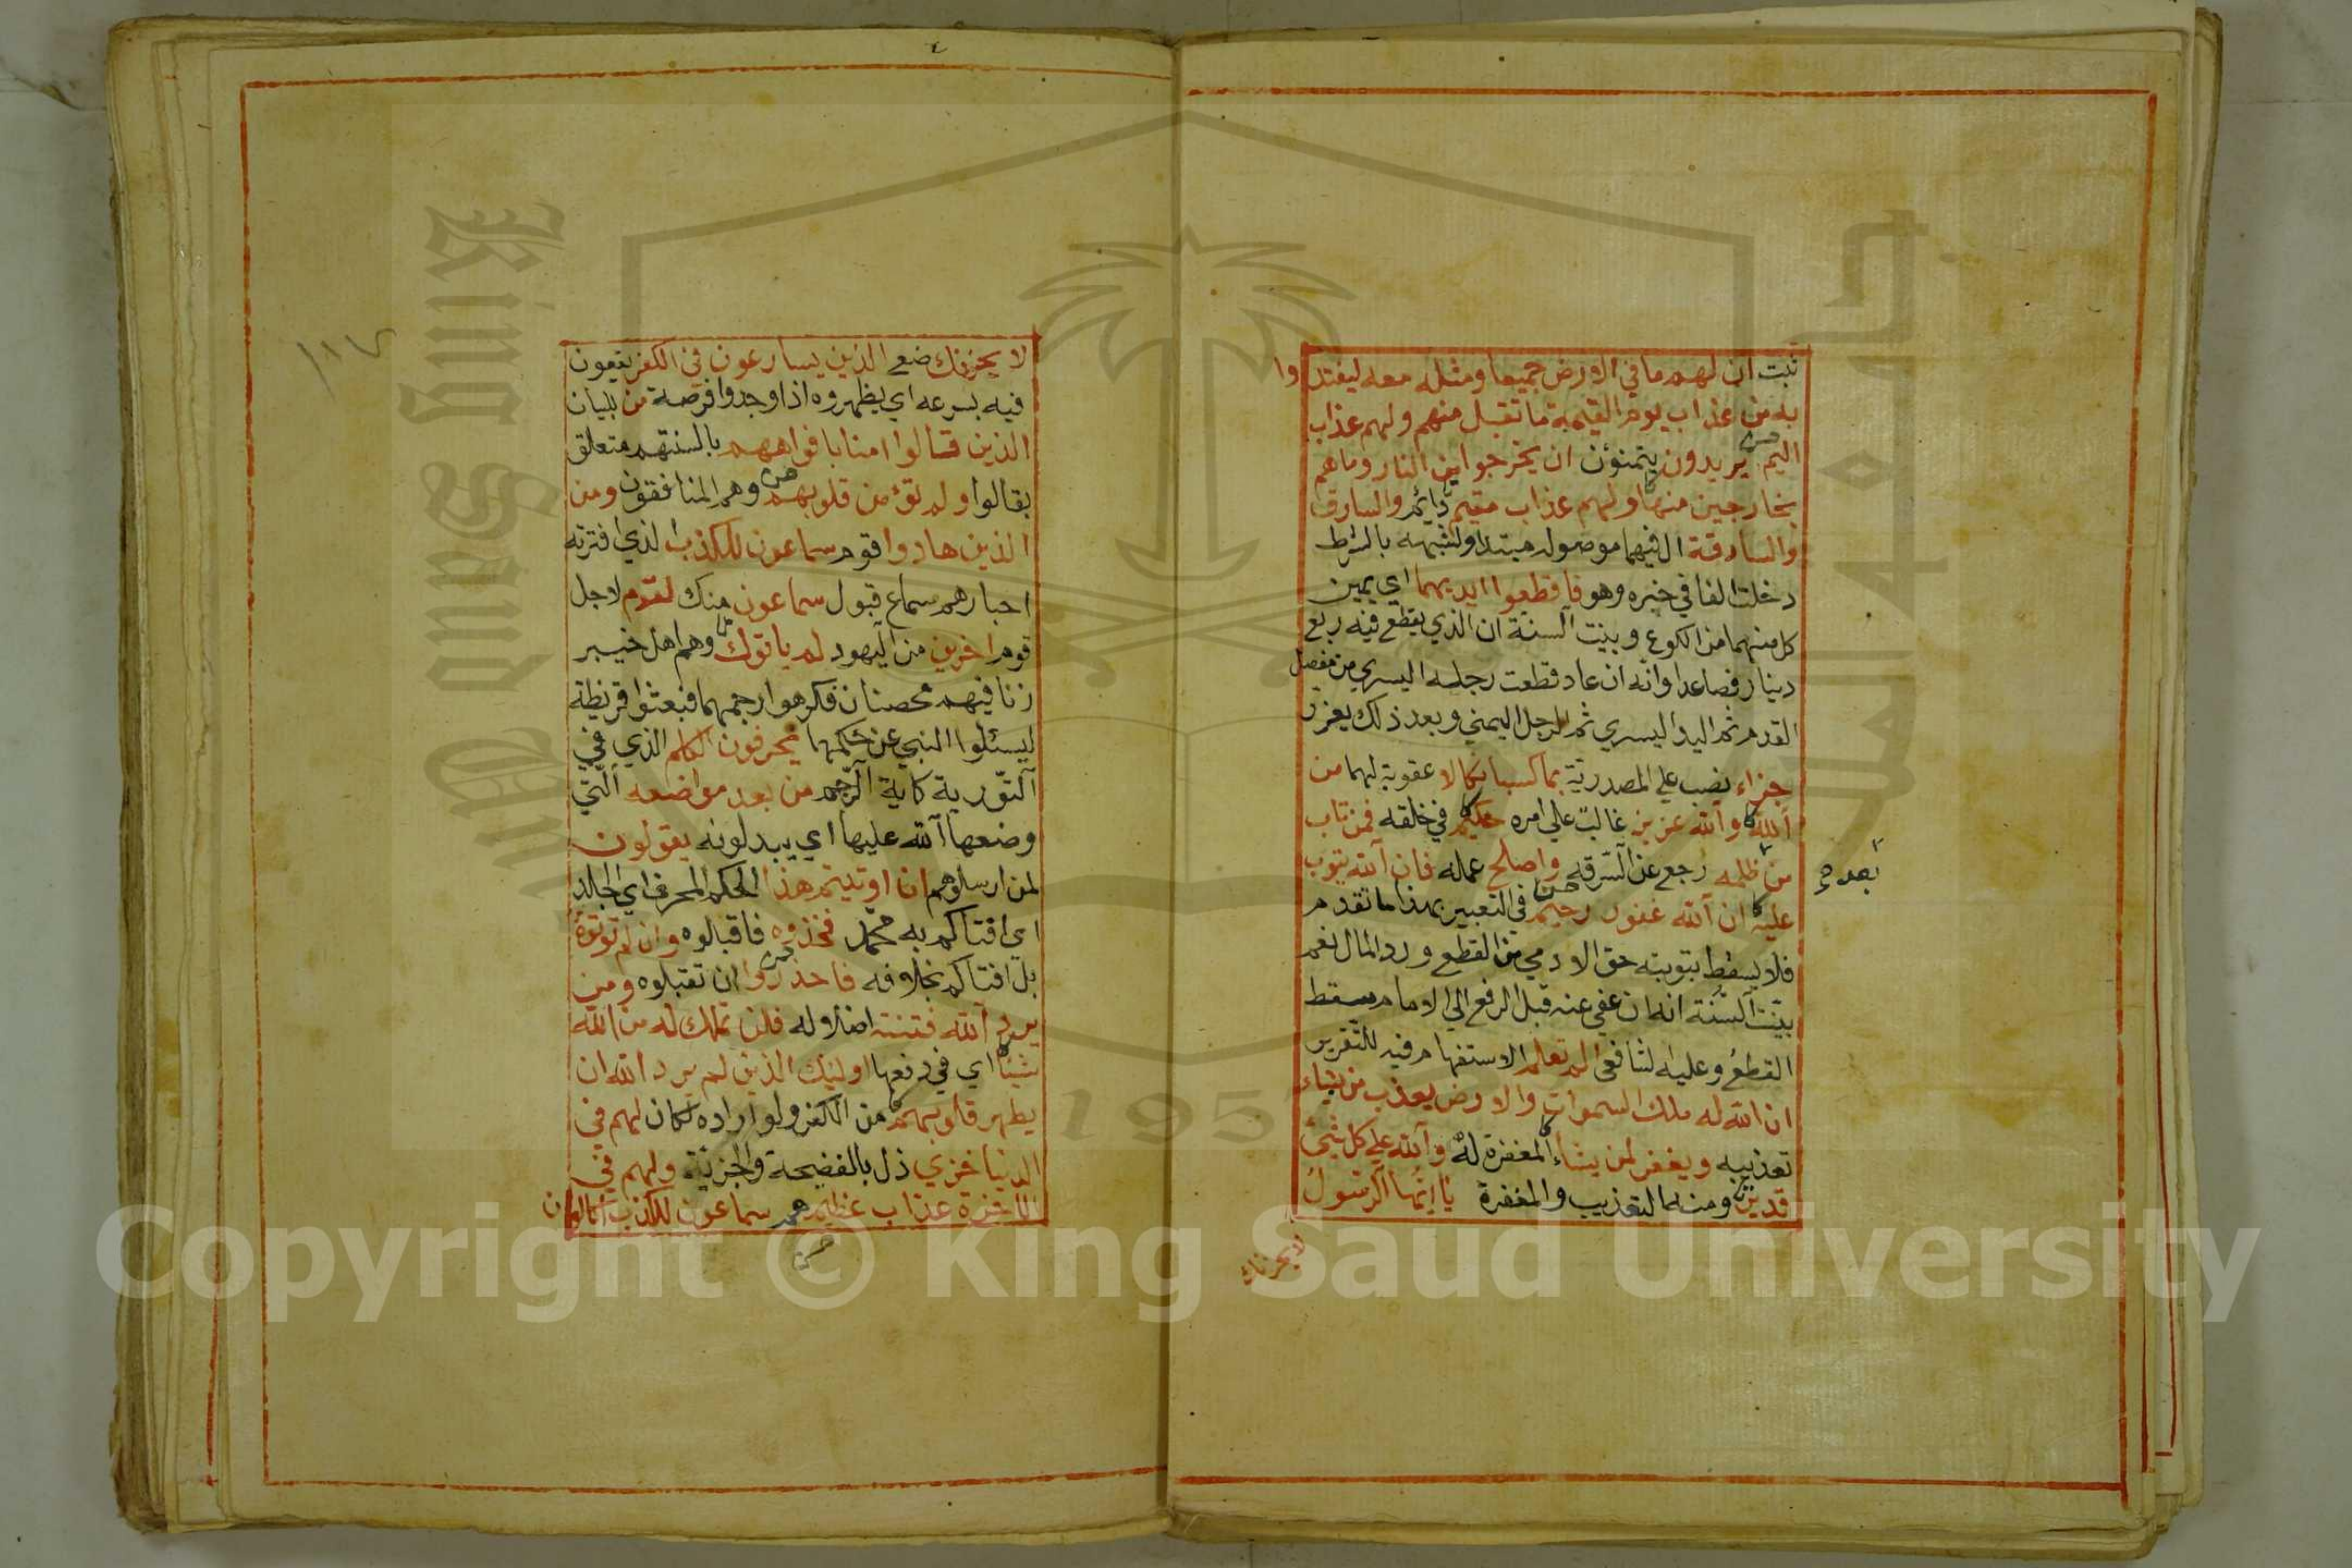 ثبت ان لهم ما في الارض جميعا ومثله معه ليفتدوا
به من عذاب يوم القيمة ما تقبل منهم ولهم عذاب
اليم يريدون يتمنون ان يخرجوا من النار وما هم
بخارجين منها ولهم عذاب مقيم دائم والسارق
والسارقة ال فيهما موصولة مبتدا ولشبهه بالشرط
دخلت الفا في خبره وهو فاقطعوا ايديهما اي يمين
كل منهما من الكوع وبينت السنة ان الذي يقطع فيه ربع
دينار فصاعدا وانه ان عاد قطعت رجله اليسري من مفصل
القدم ثم اليد اليسري ثم الرجل اليمني وبعد ذلك يعزر
جزاء نصب علي المصدرية بما كسبا نكالا عقوبة لهما من
الله والله عزيز غالب علي امره حكيم في خلقه فمن تاب
من ظلمه رجع عن السرقه واصلح عمله فان الله يتوب
بعد
عليه ان الله غفور رحيم في التعبير بهذا ما تقدم
فلا يسقط بتوبته حق الادمي من القطع ورد المال نعم
بينت السنة انه ان عفي عنه قبل الرفع الي الامام سقط
القطع وعليه الشافعي الم تعلم الاستفهام فيه للتقرير
ان الله له ملك السموات والارض يعذب من يشاء
تعذيبه ويغفر لمن يشاء المغفرة له والله علي كل شيئ
قدير ومنه التعذيب والمغفرة يا ايها الرسول
لا يحزنك
لا يحزنك صنع الذين يسارعون في الكفر يقعون
فيه بسرعه اي يظهروه اذا وجدوا فرصة من بيان
الذين قالوا امنا بافواههم بالسنتهم متعلق
بقالوا ولم تؤمن قلوبهم وهم المنافقون ومن
الذين هادوا قوم سماعون للكذب الذي افترته
احبارهم سماع قبول سماعون منك لقوم لاجل
قوم اخرين من اليهود لم ياتوك وهم اهل خيبر
زنا فيهم محصنان فكرهوا رجمهما فبعثوا قريظة
ليسئلوا النبي عن حكمها يحرفون الكلم الذي في
التورية كاية الرجم من بعد مواضعه التي
وضعها الله عليها اي يبدلونه يقولون
لمن ارسلوهم ان اوتيتم هذا الحكم المحرف اي الجلد
اي افتاكم به محمد فخذوه فاقبلوه وان لم توتوه
بل افتاكم بخلافه فاحذروا ان تقبلوه ومن
يرد الله فتنته اضلاله فلن تملك له من الله
شيئا اي في دفعها اولئك الذين لم يرد الله ان
يطهر قلوبهم من الكفر ولو اراده لكان لهم في
الدنيا خزي ذل بالفضيحة والجزية ولهم في
الاخرة عذاب عظيم هم سماعون للكذب اكالون
١١٧
Copyright © King Saud University
King Saud University
195